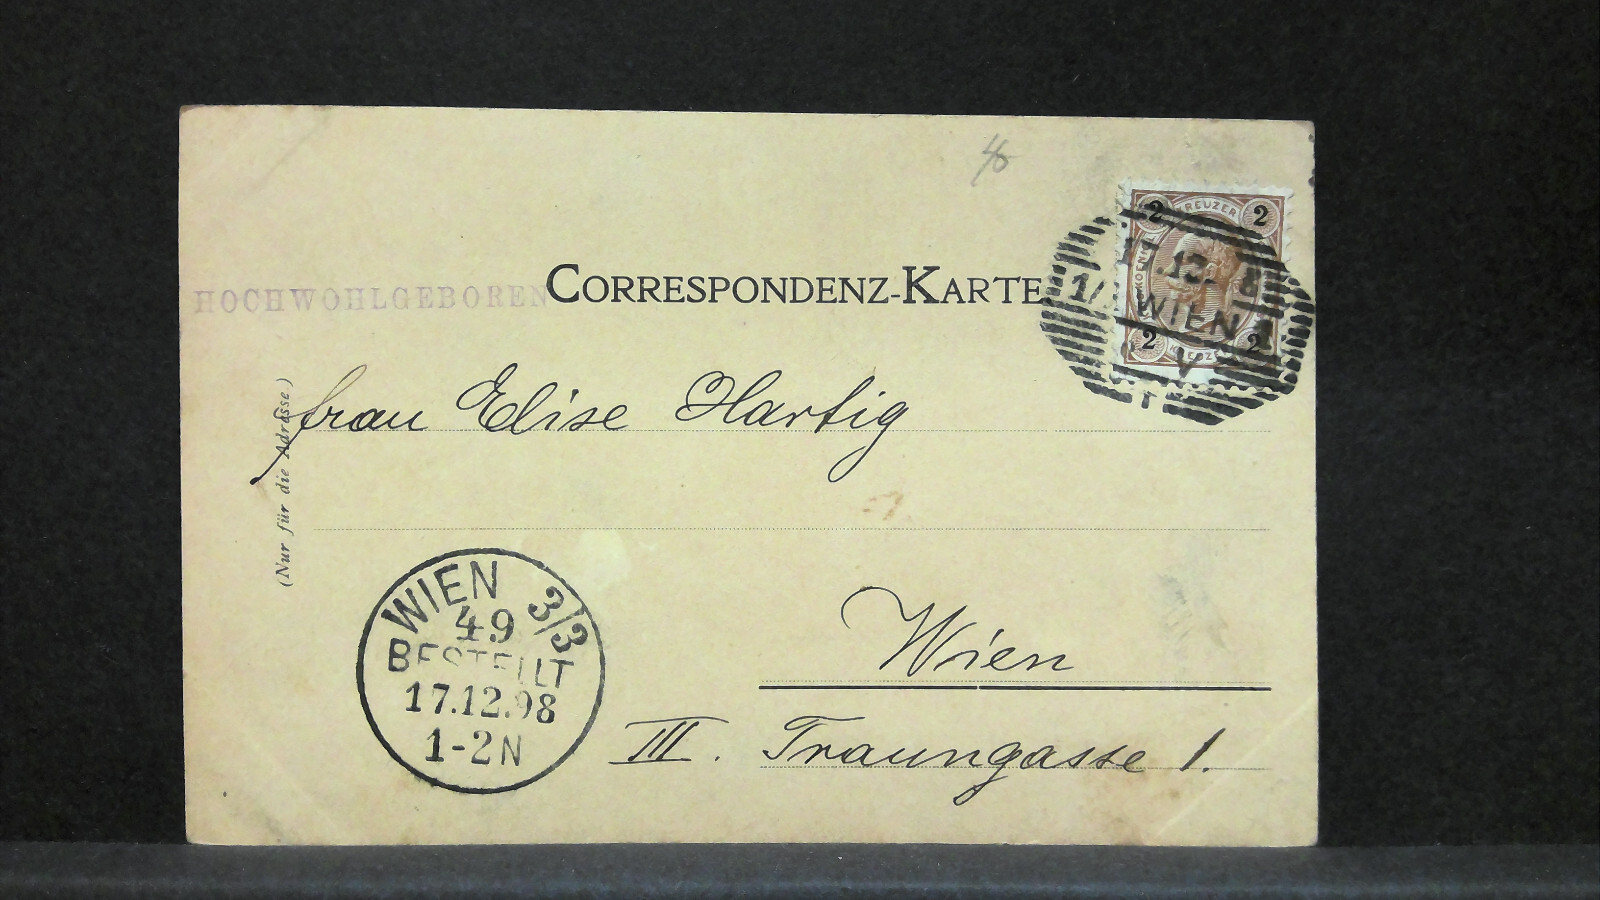 40
HOCHWOHLGEBOREN
CORRESPONDENZ-KARTE
2 KREUZER 2
17.12.98
1/1 WIEN 1
V
2 KREUZER 2
frau Elise Hartig
(Nur für die Adresse)
Wien
III. Traungasse 1.
WIEN 3/3
49
BESTELLT
17.12.98
1-2N